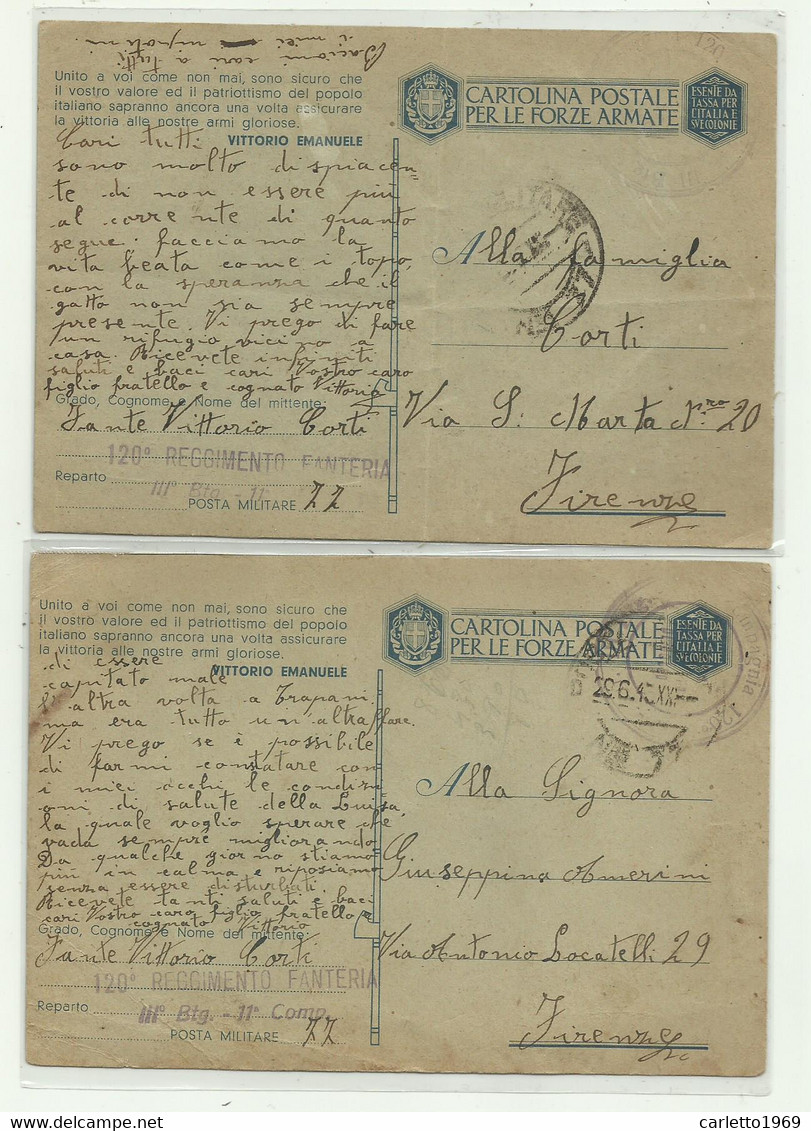 Bacioni cari a tutti
i miei nipotini
Unito a voi come non mai, sono sicuro che
il vostro valore ed il patriottismo del popolo
italiano sapranno ancora una volta assicurare
la vittoria alle nostre armi gloriose.
VITTORIO EMANUELE
Cari tutti
sono molto dispiacen=
te di non essere più
al corrente di quanto
segue: facciamo la
vita beata come i topo,
con la speranza che il
gatto non sia sempre
presente. Vi prego di fare
un rifugio vicino a
casa. Ricevete infiniti
saluti e baci cari Vostro caro
figlio fratello e cognato Vittorio
Grado, Cognome e Nome del mittente:
Fante Vittorio Corti
120° REGGIMENTO FANTERIA
Reparto
III° Btg. - 11
POSTA MILITARE 77
120
CARTOLINA POSTALE
PER LE FORZE ARMATE
ESENTE DA
TASSA PER
L'ITALIA E
SVE COLONIE
Alla famiglia
Corti
Via S. Marta N.ro 20
Firenze
Unito a voi come non mai, sono sicuro che
il vostro valore ed il patriottismo del popolo
italiano sapranno ancora una volta assicurare
la vittoria alle nostre armi gloriose.
VITTORIO EMANUELE
di essere
capitato male
l'altra volta a Trapani
ma era tutto un'altraffare.
Vi prego se è possibile
di farmi constatare con
i miei occhi le condizi
oni di salute della Luisa,
la quale voglio sperare che
vada sempre migliorando
Da qualche giorno stiamo
più in calma e riposiamo
senza essere disturbati.
Ricevete tanti saluti e baci
cari Vostro caro figlio fratello e
cognato Vittorio
Grado, Cognome e Nome del mittente:
Fante Vittorio Corti
120° REGGIMENTO FANTERIA
Reparto
III° Btg. - 11ª Comp.
POSTA MILITARE 77
CARTOLINA POSTALE
PER LE FORZE ARMATE
ESENTE DA
TASSA PER
L'ITALIA E
SVE COLONIE
29.6.4
Alla Signora
Giuseppina Amerini
Via Antonio Locatelli 29
Firenze
carletto1969